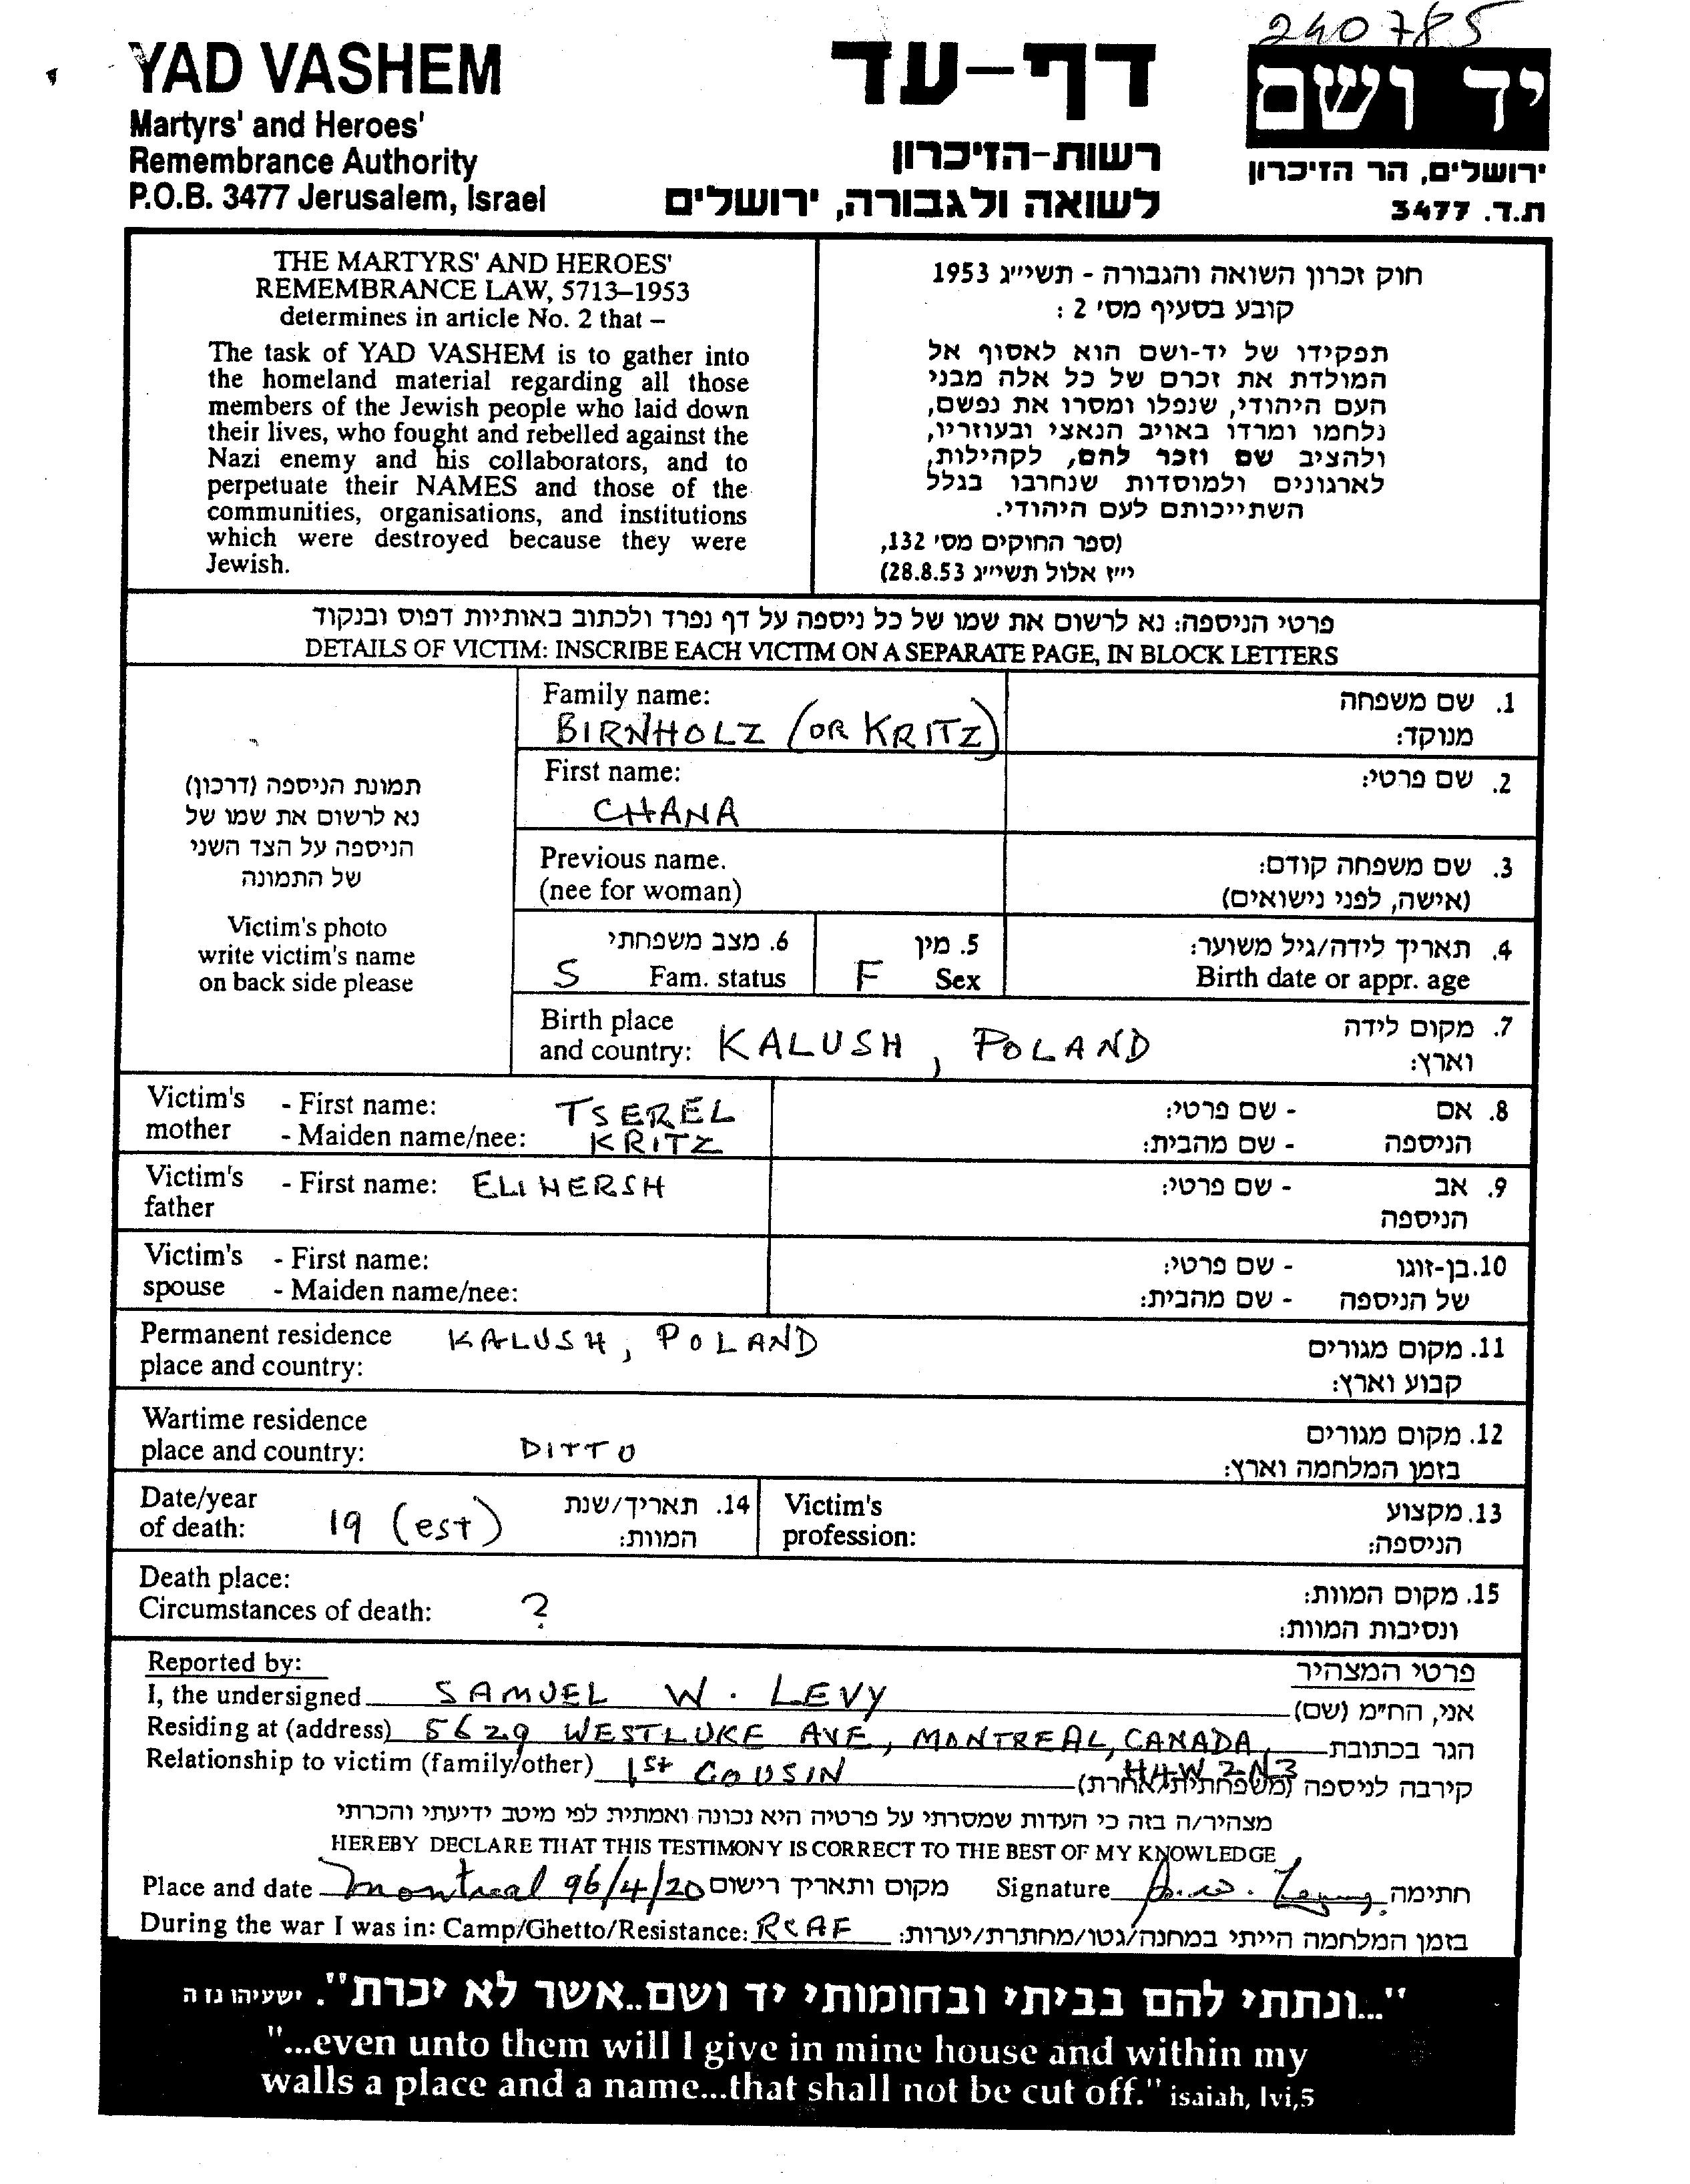 240785
YAD VASHEM
Martyrs' and Heroes'
Remembrance Authority
P.O.B. 3477 Jerusalem, Israel
דף-עד
רשות-הזיכרון
לשואה ולגבורה, ירושלים
יד ושם
ירושלים, הר הזיכרון
ת.ד. 3477
THE MARTYRS' AND HEROES'
REMEMBRANCE LAW, 5713–1953
determines in article No. 2 that –
The task of YAD VASHEM is to gather into
the homeland material regarding all those
members of the Jewish people who laid down
their lives, who fought and rebelled against the
Nazi enemy and his collaborators, and to
perpetuate their NAMES and those of the
communities, organisations, and institutions
which were destroyed because they were
Jewish.
חוק זכרון השואה והגבורה - תשי״ג 1953
קובע בסעיף מס׳ 2 :
תפקידו של יד-ושם הוא לאסוף אל
המולדת את זכרם של כל אלה מבני
העם היהודי, שנפלו ומסרו את נפשם,
נלחמו ומרדו באויב הנאצי ובעוזריו,
ולהציב שם וזכר להם, לקהילות,
לארגונים ולמוסדות שנחרבו בגלל
השתייכותם לעם היהודי.
(ספר החוקים מס׳ 132,
י״ז אלול תשי״ג 28.8.53)
פרטי הניספה: נא לרשום את שמו של כל ניספה על דף נפרד ולכתוב באותיות דפוס ובנקוד
DETAILS OF VICTIM: INSCRIBE EACH VICTIM ON A SEPARATE PAGE, IN BLOCK LETTERS
תמונת הניספה (דרכון)
נא לרשום את שמו של
הניספה על הצד השני
של התמונה
Victim's photo
write victim's name
on back side please
Family name:
BIRNHOLZ (OR KRITZ)
1. שם משפחה
מנוקד:
First name:
CHANA
2. שם פרטי:
Previous name.
(nee for woman)
3. שם משפחה קודם:
(אישה, לפני נישואים)
6. מצב משפחתי
S Fam. status
5. מין
F Sex
4. תאריך לידה/גיל משוער:
Birth date or appr. age
Birth place
and country: KALUSH, POLAND
7. מקום לידה
וארץ:
Victim's - First name: TSEREL
mother - Maiden name/nee: KRITZ
8. אם - שם פרטי:
הניספה - שם מהבית:
Victim's - First name: ELI HERSH
father
9. אב - שם פרטי:
הניספה
Victim's - First name:
spouse - Maiden name/nee:
10. בן-זוגו - שם פרטי:
של הניספה - שם מהבית:
Permanent residence KALUSH, POLAND
place and country:
11. מקום מגורים
קבוע וארץ:
Wartime residence
place and country: DITTO
12. מקום מגורים
בזמן המלחמה וארץ:
Date/year
of death: 19 (est)
14. תאריך/שנת
המוות:
Victim's
profession:
13. מקצוע
הניספה:
Death place:
Circumstances of death: ?
15. מקום המוות:
ונסיבות המוות:
Reported by:
פרטי המצהיר
I, the undersigned SAMUEL W. LEVY אני, הח״מ (שם)
Residing at (address) 5629 WESTLUKE AVE, MONTREAL, CANADA, הגר בכתובת
H4W 2N3
Relationship to victim (family/other) 1st COUSIN קירבה לניספה (משפחתית/אחרת)
מצהיר/ה בזה כי העדות שמסרתי על פרטיה היא נכונה ואמתית לפי מיטב ידיעתי והכרתי
HEREBY DECLARE THAT THIS TESTIMONY IS CORRECT TO THE BEST OF MY KNOWLEDGE
Place and date Montreal 96/4/20 מקום ותאריך רישום Signature S.W. Levy חתימה
During the war I was in: Camp/Ghetto/Resistance: RCAF בזמן המלחמה הייתי במחנה/גטו/מחתרת/יערות:
"...ונתתי להם בביתי ובחומותי יד ושם..אשר לא יכרת". ישעיהו נז ה
"...even unto them will I give in mine house and within my
walls a place and a name...that shall not be cut off." isaiah, lvi,5